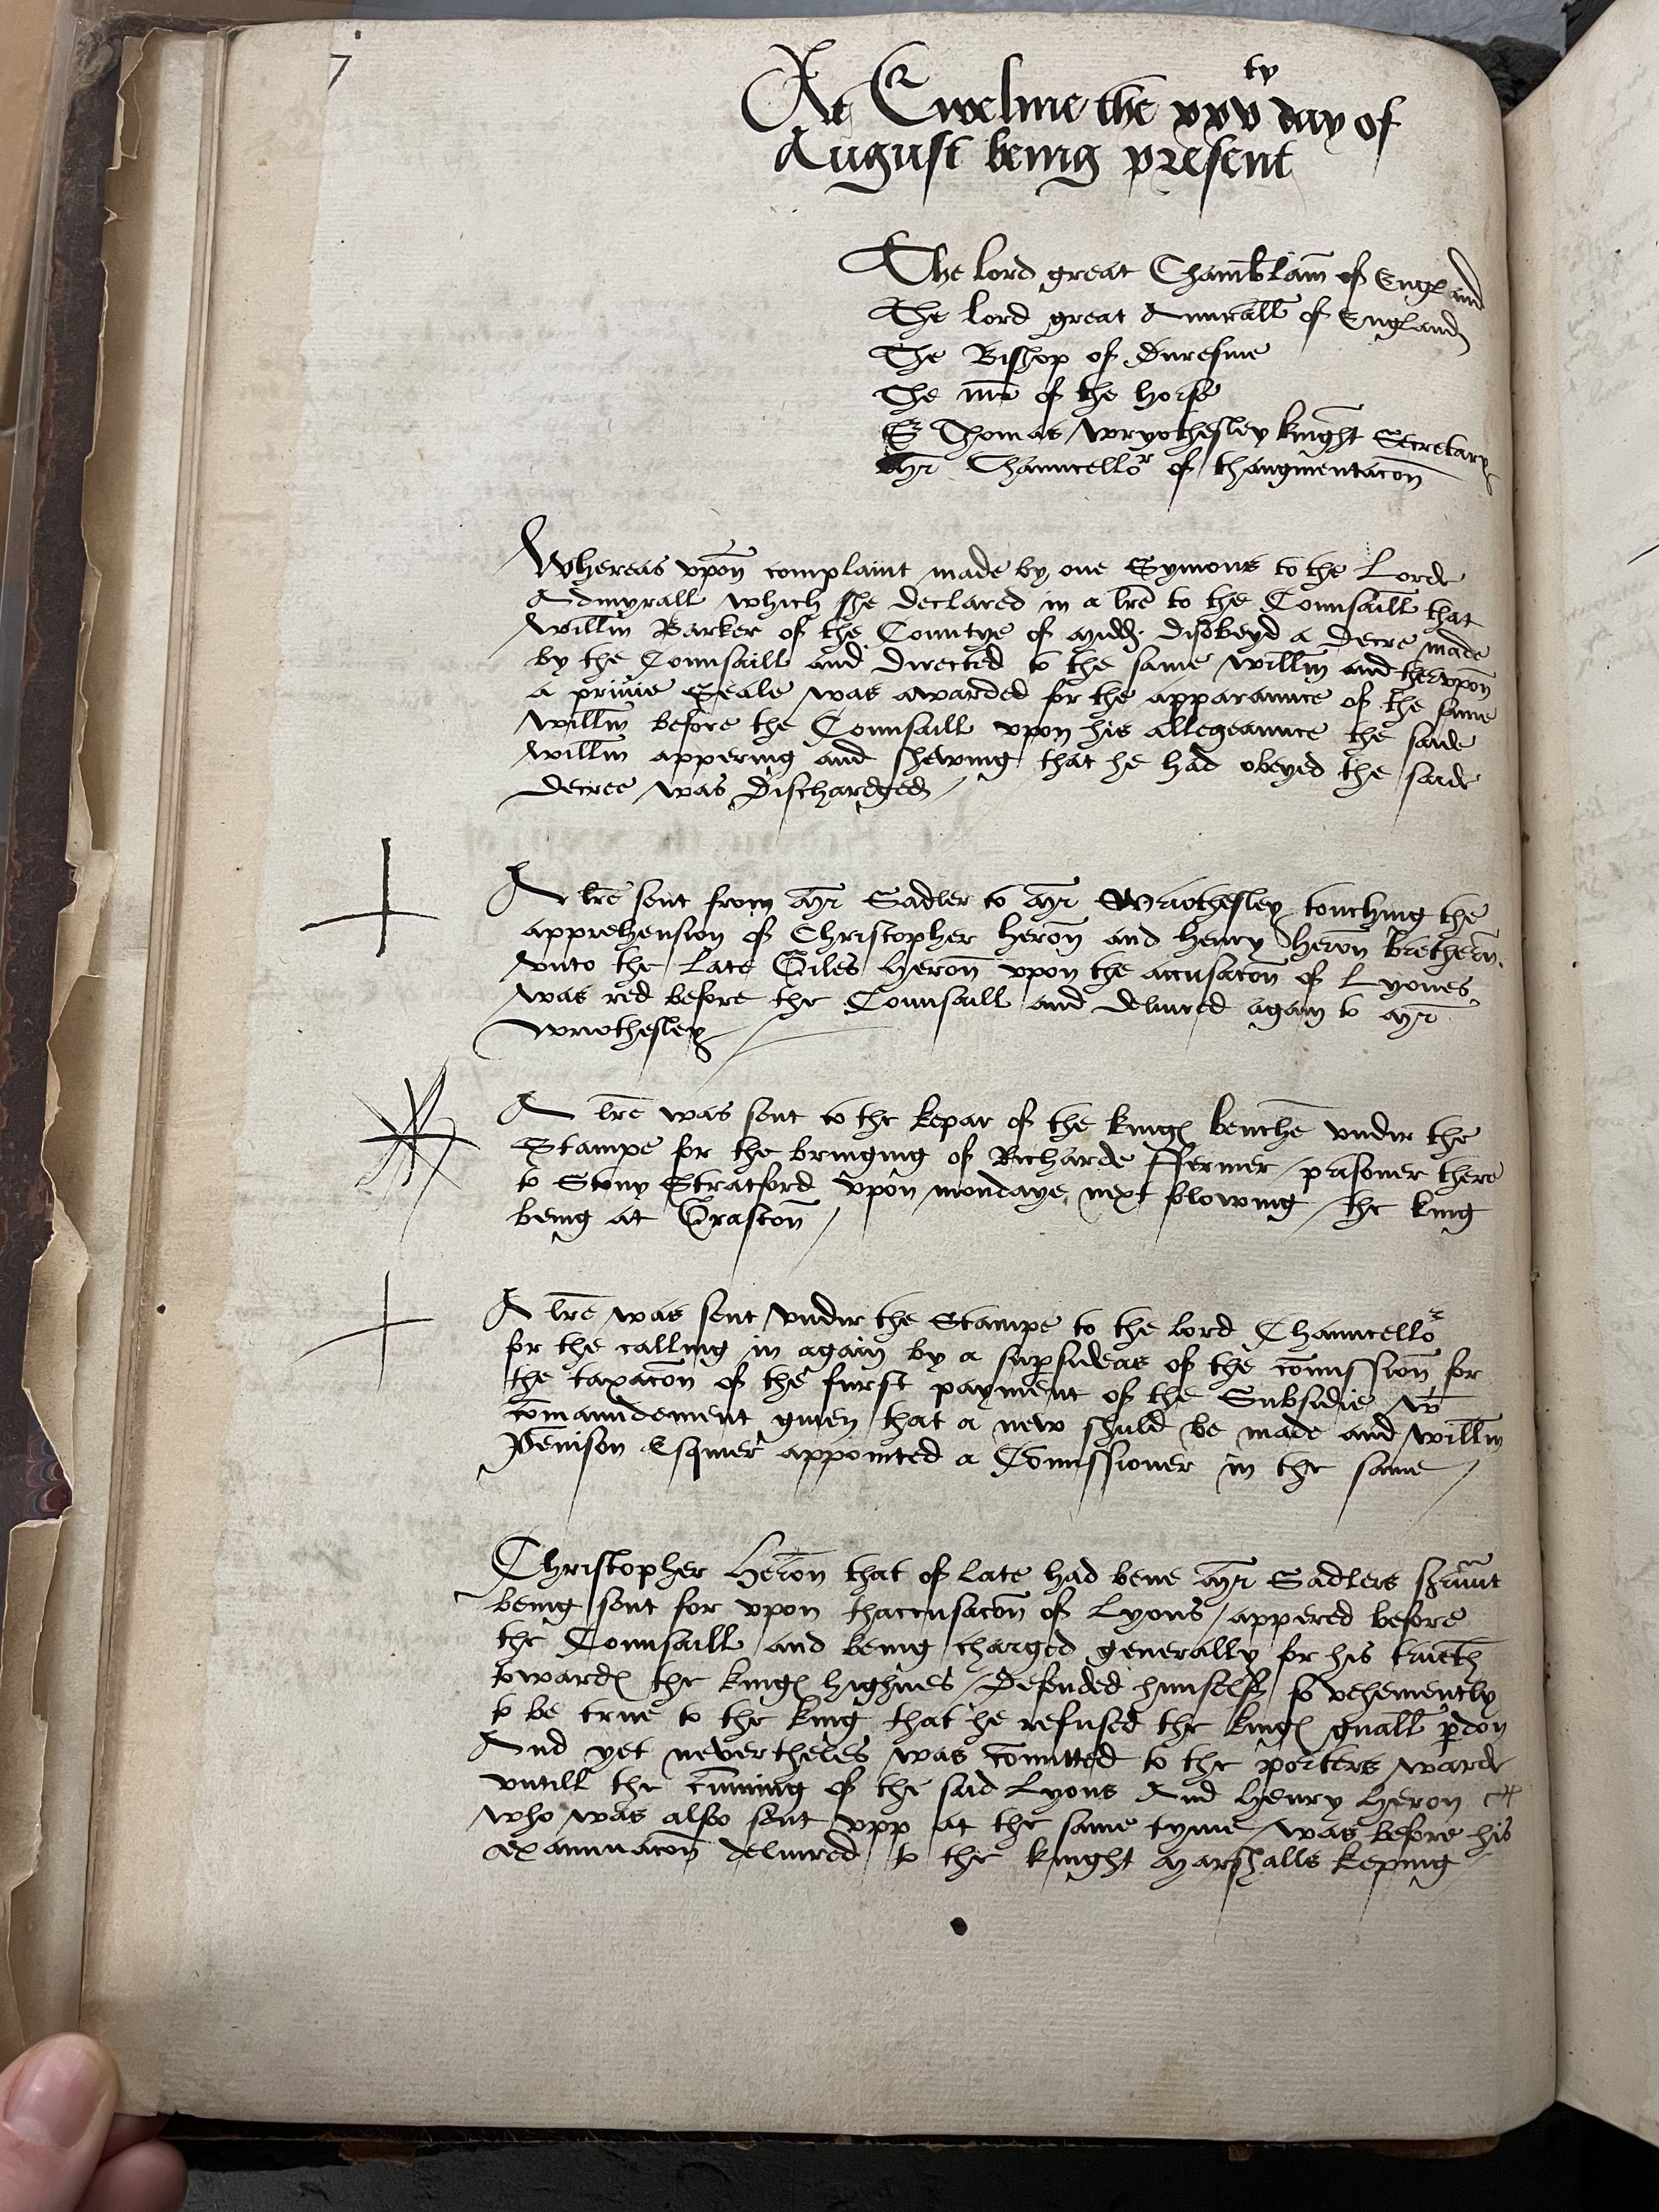 7
At Ewelme the xxv ty day of
August being present
The lord great Chamb̄lain of England
The lord great Admirall of England
The Bisshop of Duresme
The mr̄ of the horse
Sr Thomas Wryothesley knight Secretary
Mr Chauncellor of thaugmentacōn
Whereas vpōn complaint made by one Symons to the Lorde
Admyrall which he declared in a lr̄e to the Counsaill that
Willm̄ Barker of the Countye of Midd. disobeyd a Decre made
by the Counsaill and directed to the same Willm̄ and thervpōn
a privie Seale was awarded for the apparaunce of the same
Willm̄ before the Counsaill vpon his allegeaunce the saide
Willm̄ appering and shewing that he had obeyed the saide
decree was dischardged
A lr̄e sent from Mr Sadler to Mr Wriothesley touching the
apprehension of Christopher herōn and henry herōn brethern
vnto the late Giles herōn vpon the accusacōn of Lyones
was red before the Counsaill and deliured again to Mr
Wriothesley
A lr̄e was sent to the kepar of the kinges benche vnder the
Stampe for the bringing of Richarde Ffermer prisoner there
to Stony Stratford vpōn mondaye next folowing the king
being at Graftōn
A lr̄e was sent vnder the Stampe to the lord Chauncellor
for the calling in again by a supsideas of the com̄issiōn for
the taxacōn of the furst payment of the Subsidie wt
com̄aundement given that a new shuld be made and Willm̄
Penison Esquier appointed a Com̄issioner in the same
Christopher herōn that of late had bene Mr Sadlers sr̄uūnt
being sent for vpon thaccusacōn of Lyons appered before
the Counsaill and being charged generally for his trueth
towardes the kinges highnes defended himself so vehemently
to be true to the king that he refused the kinges gn̄all p̄don
And yet nevertheles was com̄itted to the porters warde
vntill the cūming of the said Lyons And henry heron
who was also sent vpp at the same tyme was before his
examinacōn deliured to the knight Marshalls keping